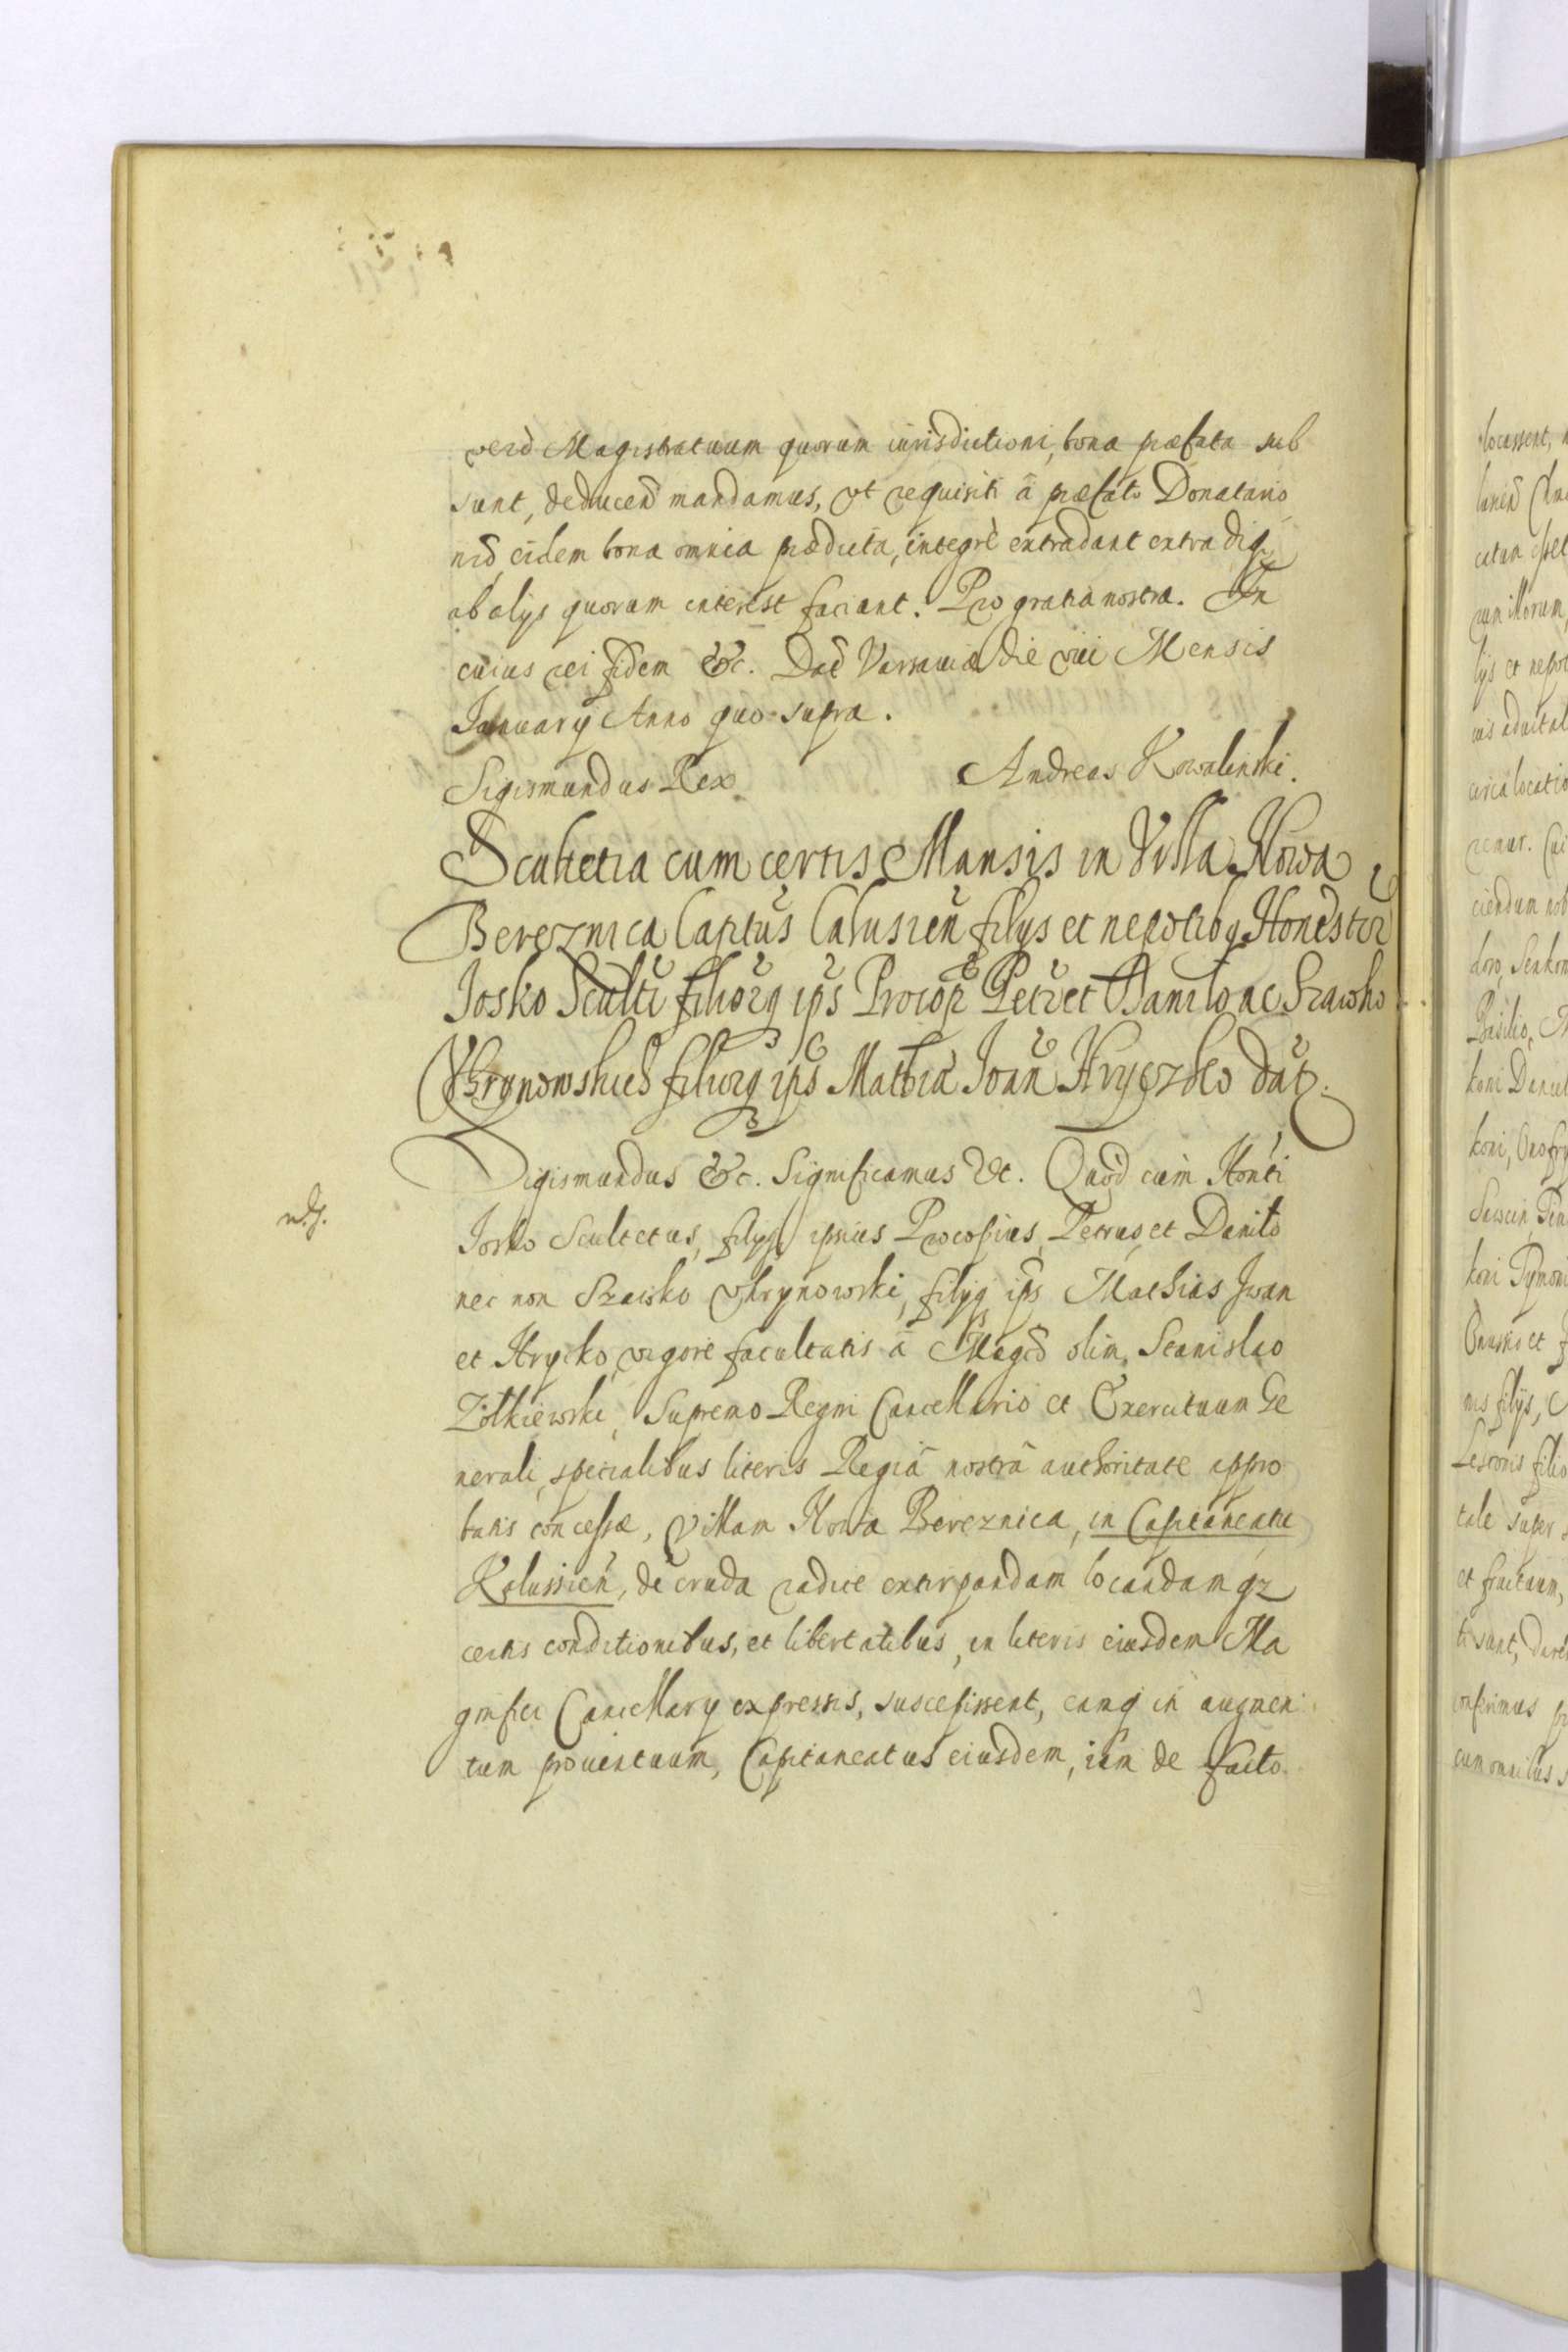 verò Magistratuum quorum iurisdictioni, bona præfata sub
sunt, deducen̄ mandamus, vt requisiti â præfato Donatario
nrō, eidem bona omnia prædicta, integrè extradant extradiq,
ab alijs quorum interest faciant. Pro gratia nostra. In
cuius rei fidem &c. Dat̄ Varsauiæ die viii Mensis
Januarij Anno quo supra.
Sigismundus Rex. Andreas Kowalinski.
Scultetia cum certis Mansis in Villa Nowa
Bereznica Captūs Calusien̄ filijs et nepotibq, Honestor̄
Josko Sculti filiorq ips̄ Procop̄ Petr̄ et Danilo ac Szawko
Vhrynowskich filiorq ips̄ Mathia Joan̄ Hryczko datr̄.
Sigismundus &c. Significamus &c. Quòd cùm Hon̄ti
Josko Scultetus, filijq, ipsius Procopius, Petrus, et Danilo
nec non Szawko Vhrynowski, filijq ips̄ Mathias Iwan
et Hrycko, vigore facultatis â Magcō olim, Stanislao
Zołkiewski, Supremo Regni Cancellario et Exercituum Ge
nerali, specialibus literis Regiâ nostrâ authoritate appro
batis concessæ, Villam Nowa Bereznica, in Capitaneatu
Kalussien̄, de cruda radice extirpandam locandamqz
certis conditionibus, et libertatibus, in literis eiusdem Ma
gnifici Cancellarij expressis, suscepissent, eamq in augmen
tum prouentuum, Capitaneatus eiusdem, iam de facto
locassent,
catam esset
rum illorum,
lijs et nepot
circa locatio
ciendum nob
Basilio, M
koni Daniel
nis filijs,
tale super
et fructuum,
ti sunt,
conferimus
cum omnibus s